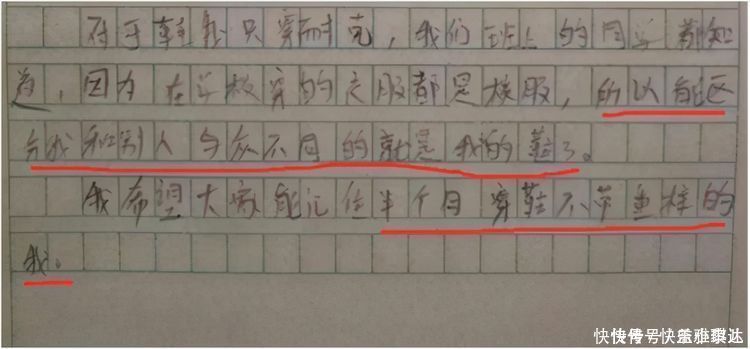 对于鞋我只穿耐克，我们班上的同学都知
道，因为在学校穿的衣服都是校服，所以能区
分我和别人与众不同的就是我的鞋了。
我希望大家能记住半个月穿鞋不带重样的
我。
快传号